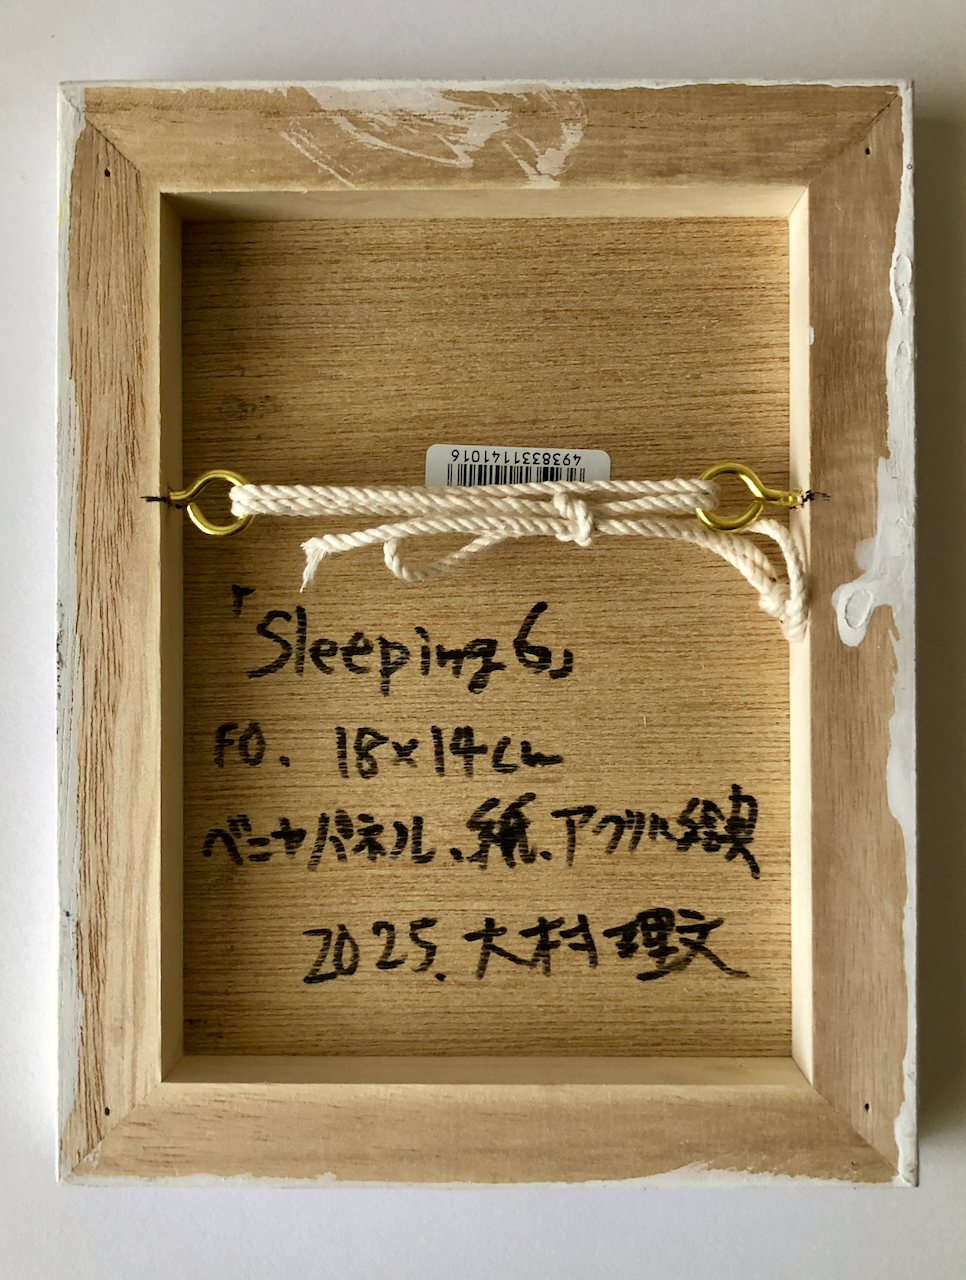 4938331141016
「Sleeping6」
F0. 18×14cm
ベニヤパネル、紙、アクリル絵具
2025. 大村理文